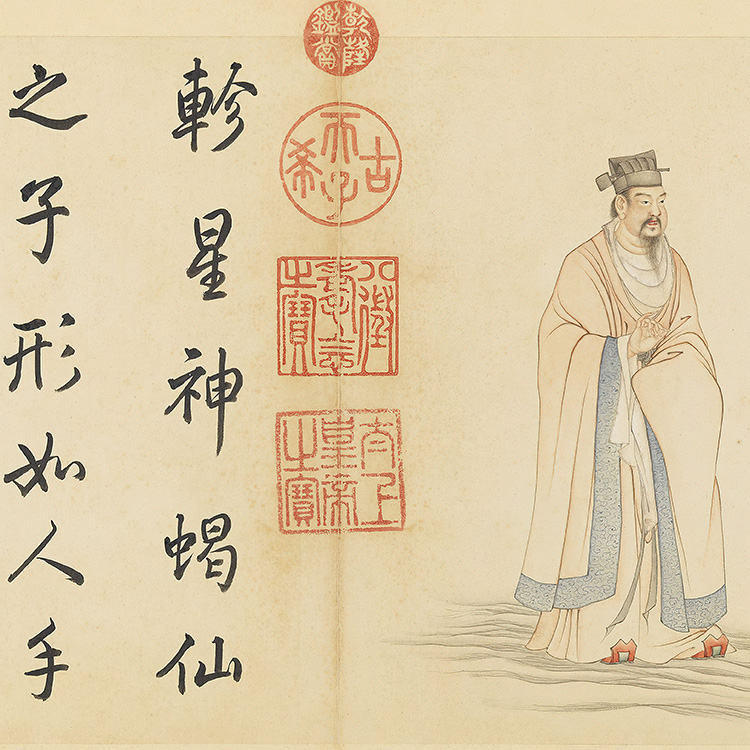 乾隆鑑賞
古希天子
八徵耄念之寶
太上皇帝之寶
軫星神蝎仙
之子形如人手